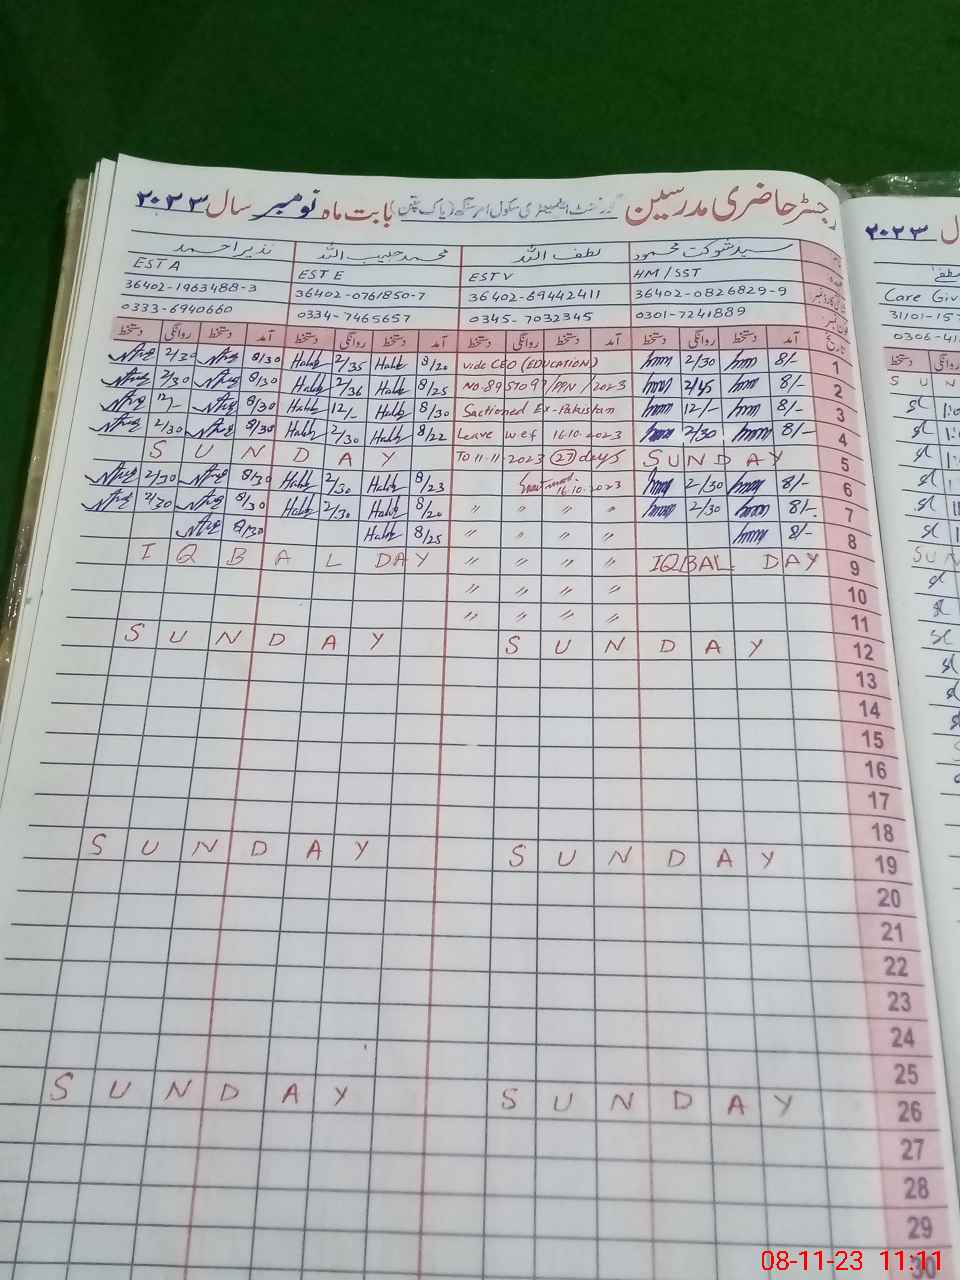 رجسٹر حاضری مدرسین گورنمنٹ ایلیمنٹری سکول امر سنگھ (پاک پتن) بابت ماہ نومبر سال ۲۰۲۳
سید شوکت محمود لطف اللہ محمد حبیب اللہ نذیر احمد
EST A EST E EST V HM/SST
36402-1963488-3 36402-0761850-7 36402-69442411 36402-0826829-9
0333-6940660 0334-7465657 0345-7032345 0301-7241889
تاریخ آمد دستخط روانگی دستخط آمد دستخط روانگی دستخط آمد دستخط روانگی دستخط آمد دستخط روانگی دستخط
2/30 8/30 Habib 2/35 Habib 8/20 vide CEO (EDUCATION) 2/30 8/- 1
2/30 8/30 Habib 2/36 Habib 8/25 2/45 8/- 2
12/- 8/30 Habib 12/- Habib 8/30 Sactioned Ex-Pakistan 12/- 8/- 3
2/30 8/30 Habib 2/30 Habib 8/22 Leave wef 16-10-2023 2/30 8/- 4
SUNDAY To 11-11-2023 (27) days SUNDAY 5
2/30 8/30 Habib 2/30 Habib 8/23 16-10-2023 2/30 8/- 6
2/30 8/30 Habib 2/30 Habib 8/20 " " " " 2/30 8/- 7
8/30 Habib 8/25 " " " " 8/- 8
IQBAL DAY " " " " IQBAL DAY 9
" " " " 10
" " " " 11
SUNDAY SUNDAY 12
13
14
15
16
17
18
SUNDAY SUNDAY 19
20
21
22
23
24
25
SUNDAY SUNDAY 26
27
28
29
30
۲۰۲۳
Care Giv
31101-157
0306-41
دستخط روانگی
SUN
SUN
08-11-23 11:11